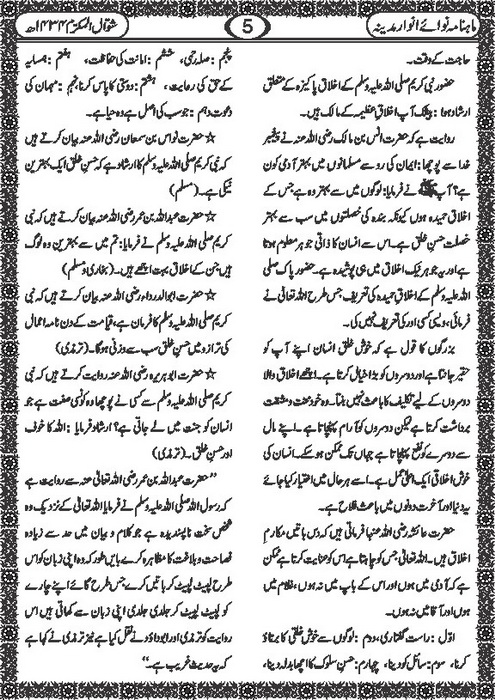 ماہنامہ نوائے انوار مدینہ
5
شوال المکرم ۱۴۳۴ھ
حاجت کے وقت۔
حضور نبی کریم صلی اللہ علیہ وسلم کے اخلاق پاکیزہ کے متعلق
ارشاد ہوا: بیشک آپ اخلاق عظیمہ کے مالک ہیں۔
روایت ہے کہ حضرت انس بن مالک رضی اللہ عنہ نے پیغمبر
خدا سے پوچھا: ایمان کی رو سے مسلمانوں میں بہتر آدمی کون
ہے؟ آپ ﷺ نے فرمایا: لوگوں میں سے بہتر وہ ہے جس کے
اخلاق حمیدہ ہوں کیونکہ بندہ کی خصلتوں میں سب سے بہتر
خصلت حسن خلق ہے۔ اس سے انسان کا ذاتی جوہر معلوم ہوتا
ہے اور یہ جوہر نیک اخلاق میں ہی پوشیدہ ہے۔ حضور پاک صلی
اللہ علیہ وسلم کے اخلاق حمیدہ کی تعریف جس طرح اللہ تعالیٰ نے
فرمائی، ویسی کسی اور کی تعریف نہیں کی۔
بزرگوں کا قول ہے کہ خوش خلق انسان اپنے آپ کو
حقیر جانتا ہے اور دوسروں کو بڑا خیال کرتا ہے۔ اچھے اخلاق والا
دوسروں کے لیے تکلیف کا باعث نہیں بنتا۔ وہ خود محنت و مشقت
برداشت کرتا ہے لیکن دوسروں کو آرام پہنچاتا ہے۔ اپنے مال
سے دوسرے کو نفع پہنچاتا ہے جہاں تک ممکن ہو سکے۔ انسان کی
خوش اخلاقی ایک اعلیٰ عمل ہے۔ اسے ہر حال میں اختیار کیا جائے
یہ دنیا اور آخرت دونوں میں باعث فلاح ہے۔
حضرت عائشہ رضی اللہ عنہا فرماتی ہیں کہ دس باتیں مکارم
اخلاق ہیں۔ اللہ تعالیٰ جس کو چاہتا ہے اس کو عنایت کرتا ہے ممکن
ہے کہ آدمی میں ہوں اور اس کے باپ میں نہ ہوں، غلام میں
ہوں اور آقا میں نہ ہوں۔
اوّل : راست گفتاری، دوم : لوگوں سے خوش خلقی کا برتاؤ
کرنا، سوم: سائل کو دینا، چہارم: حسن سلوک کا اچھا بدلہ دینا،
پنجم: صلہ رحمی، ششم: امانت کی حفاظت، ہفتم: ہمسایہ
کے حق کی رعایت، ہشتم: دوستی کا پاس کرنا، نہم: مہمان کی
دعوت دہم : جو سب کی اصل ہے وہ حیا ہے۔
☆ حضرت نواس بن سمعان رضی اللہ عنہ بیان کرتے ہیں
کہ نبی کریم صلی اللہ علیہ وسلم کا ارشاد ہے کہ حسن خلق ایک بہترین
نیکی ہے۔ (مسلم)
☆ حضرت عبداللہ بن عمر رضی اللہ عنہ بیان کرتے ہیں کہ نبی
کریم صلی اللہ علیہ وسلم نے فرمایا: تم میں سے بہترین وہ لوگ
ہیں جن کے اخلاق بہت اچھے ہیں۔ (بخاری و مسلم)
☆ حضرت ابوالدرداء رضی اللہ عنہ بیان کرتے ہیں کہ نبی
کریم صلی اللہ علیہ وسلم کا فرمان ہے، قیامت کے دن نامہ اعمال
کی ترازو میں حسن خلق سب سے وزنی ہوگا۔ (ترمذی)
☆ حضرت ابوہریرہ رضی اللہ عنہ روایت کرتے ہیں کہ نبی
کریم صلی اللہ علیہ وسلم سے کسی نے پوچھا وہ کونسی صفت ہے جو
انسان کو جنت میں لے جاتی ہے؟ ارشاد فرمایا : اللہ کا خوف
اور حسن خلق۔ (ترمذی)
”حضرت عبداللہ بن عمر رضی اللہ تعالیٰ عنہ سے روایت ہے
کہ رسول اللہ صلی اللہ علیہ وسلم نے فرمایا اللہ تعالیٰ کے نزدیک وہ
شخص سخت ناپسندیدہ ہے جو کلام و بیان میں حد سے زیادہ
فصاحت و بلاغت کا مظاہرہ کرے بایں طور کہ وہ اپنی زبان کو اس
طرح لپیٹ لپیٹ کر باتیں کرے جس طرح گائے اپنے چارے
کو لپیٹ لپیٹ کر جلدی جلدی اپنی زبان سے کھاتی ہیں اس
روایت کو ترمذی اور ابو داؤد نے نقل کیا ہے نیز ترمذی نے کہا ہے
کہ یہ حدیث غریب ہے۔“